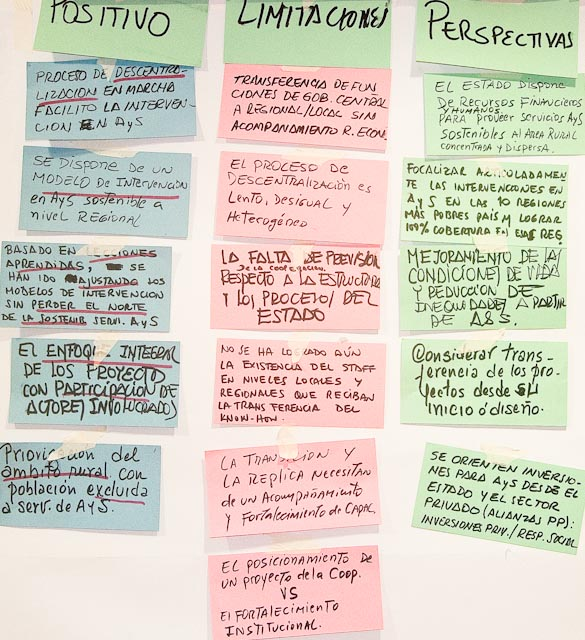 POSITIVO
PROCESO DE DESCENTRA-
LIZACION EN MARCHA
FACILITO LA INTERVEN-
CION EN AyS
SE DISPONE DE UN
MODELO DE INTERVENCION
en AyS sostenible a
nivel REGIONAL
BASADO EN LECCIONES
APRENDIDAS, SE
HAN IDO AJUSTANDO LOS
MODELOS DE INTERVENCION
SIN PERDER EL NORTE
DE LA SOSTENIB SERV. AyS
EL ENFOQUE INTEGRAL
DE LOS PROYECTOS
CON PARTICIPACION DE
ACTORES INVOLUCRADOS
Priorización del
ámbito rural con
población excluida
a serv. de AyS.
LIMITACIONES
TRANSFERENCIA DE FUN
CIONES DE GOB. CENTRAL
A REGIONAL/LOCAL SIN
ACOMPAÑAMIENTO R. ECON.
EL PROCESO DE
DESCENTRALIZACIÓN es
Lento, DESIGUAL y
Heterogéneo
LA FALTA DE PREVISION
DE LA COOPERACION
RESPECTO A LA ESTRUCTURA
Y LOS PROCESOS DEL
ESTADO
NO SE HA LOGRADO AÚN
LA EXISTENCIA DEL STAFF
EN NIVELES LOCALES Y
REGIONALES QUE RECIBAN
LA TRANSFERENCIA DEL
KNOW-HOW.
LA TRANSICION Y
LA REPLICA NECESITAN
de un Acompañamiento
y Fortalecimiento de CAPAC.
EL POSICIONAMIENTO DE
UN PROYECTO de la Coop.
VS
El FORTALECIMIENTO
INSTITUCIONAL.
PERSPECTIVAS
EL ESTADO DISPONE
DE RECURSOS FINANCIEROS
Y HUMANOS
PARA PROVEER SERVICIOS AyS
SOSTENIBLES AL AREA RURAL
CONCENTRADA Y DISPERSA.
FOCALIZAR ARTICULADAMEN
TE LAS INTERVENCIONES EN
AyS EN LAS 10 REGIONES
MÁS POBRES PAIS Y LOGRAR
100% COBERTURA EN ESAS REG.
MEJORAMIENTO DE LAS
CONDICIONES DE VIDA
Y REDUCCION DE
INEQUIDADES A PARTIR
DE A&S.
Considerar trans-
ferencia de los pro-
yectos desde su
inicio ó diseño.
SE ORIENTEN INVERSIO-
NES PARA AyS DESDE EL
ESTADO Y EL SECTOR
PRIVADO (ALIANZAS PP):
INVERSIONES PRIV./RESP. SOCIAL